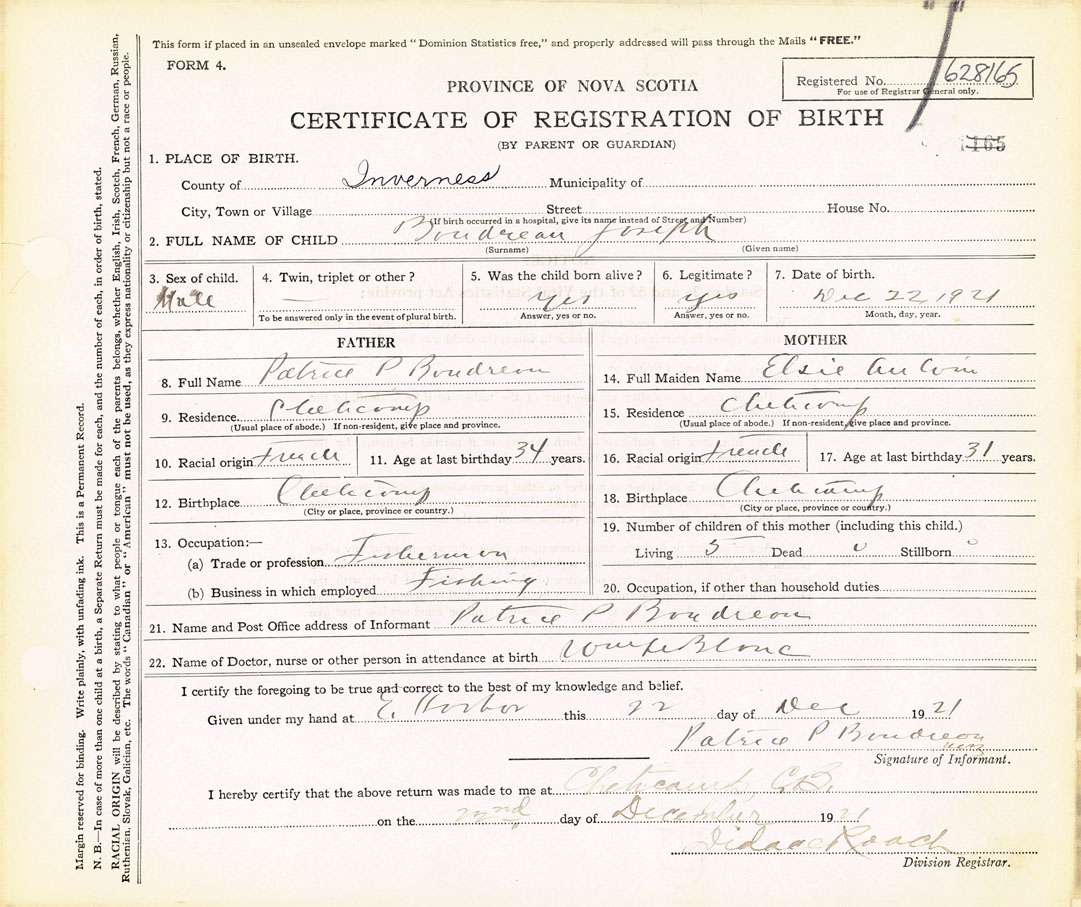 This form if placed in an unsealed envelope marked "Dominion Statistics free," and properly addressed will pass through the Mails "FREE."
FORM 4.
Registered No. 628165
For use of Registrar General only.
PROVINCE OF NOVA SCOTIA
CERTIFICATE OF REGISTRATION OF BIRTH
(BY PARENT OR GUARDIAN)
1165
1. PLACE OF BIRTH.
County of Inverness Municipality of
City, Town or Village Street House No.
(If birth occurred in a hospital, give its name instead of Street and Number)
2. FULL NAME OF CHILD Boudreau Joseph
(Surname) (Given name)
3. Sex of child. 4. Twin, triplet or other? 5. Was the child born alive? 6. Legitimate? 7. Date of birth.
Male — yes yes Dec 22, 1921
To be answered only in the event of plural birth. Answer, yes or no. Answer, yes or no. Month, day, year.
FATHER
8. Full Name Patrice P Boudreau
9. Residence Cheticamp
(Usual place of abode.) If non-resident, give place and province.
10. Racial origin French 11. Age at last birthday 34 years.
12. Birthplace Cheticamp
(City or place, province or country.)
13. Occupation:—
(a) Trade or profession Fisherman
(b) Business in which employed Fishing
MOTHER
14. Full Maiden Name Elsie
15. Residence Cheticamp
(Usual place of abode.) If non-resident, give place and province.
16. Racial origin French 17. Age at last birthday 31 years.
18. Birthplace Cheticamp
(City or place, province or country.)
19. Number of children of this mother (including this child.)
Living 5 Dead 0 Stillborn 0
20. Occupation, if other than household duties
21. Name and Post Office address of Informant Patrice P Boudreau
22. Name of Doctor, nurse or other person in attendance at birth
I certify the foregoing to be true and correct to the best of my knowledge and belief.
Given under my hand at E. Harbor this 22 day of Dec 1921
Patrice P Boudreau
Signature of Informant.
I hereby certify that the above return was made to me at Cheticamp, C.B.
on the 22nd day of December 1921
Didace Roach
Division Registrar.
Margin reserved for binding. Write plainly, with unfading ink. This is a Permanent Record.
N. B.—In case of more than one child at a birth, a Separate Return must be made for each, and the number of each, in order of birth, stated.
RACIAL ORIGIN will be described by stating to what people or tongue each of the parents belongs, whether English, Irish, Scotch, French, German, Russian,
Ruthenian, Slovak, Galician, etc. The words "Canadian" or "American" must not be used, as they express nationality or citizenship but not a race or people.